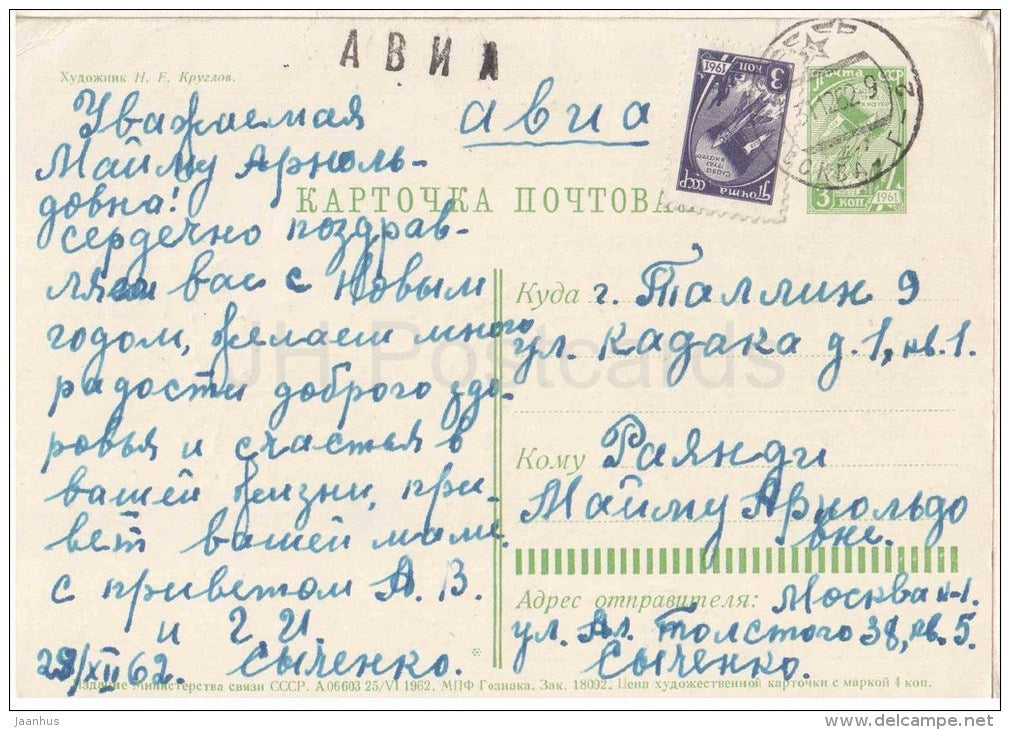 АВИА
Художник Н. Е. Круглов.
Уважаемая
Майму Арноль-
довна!
сердечно поздрав-
ляем вас с Новым
годом, желаем много
радости доброго здо-
ровья и счастья в
вашей жизни, при-
вет вашей маме.
с приветом А. В.
и Г. И.
Сыченко.
/XII 62.
авиа
КАРТОЧКА ПОЧТОВАЯ
1961
3 КОП
ПОЧТА СССР
ПОЧТА СССР
5 КОП 1961
31 12 62 9
МОСКВА
Куда г. Таллин 9
ул. Кадака д. 1, кв. 1.
Кому Раянди
Майму Арнольдо
вне.
Адрес отправителя: Москва
ул. Ал. Толстого 38, кв. 5.
Сыченко.
Издание Министерства связи СССР. А 06603 25/VI 1962. МПФ Гознака. Зак. 18092. Цена художественной карточки с маркой 4 коп.
JH Postcards
jaanhus
www.delcampe.net